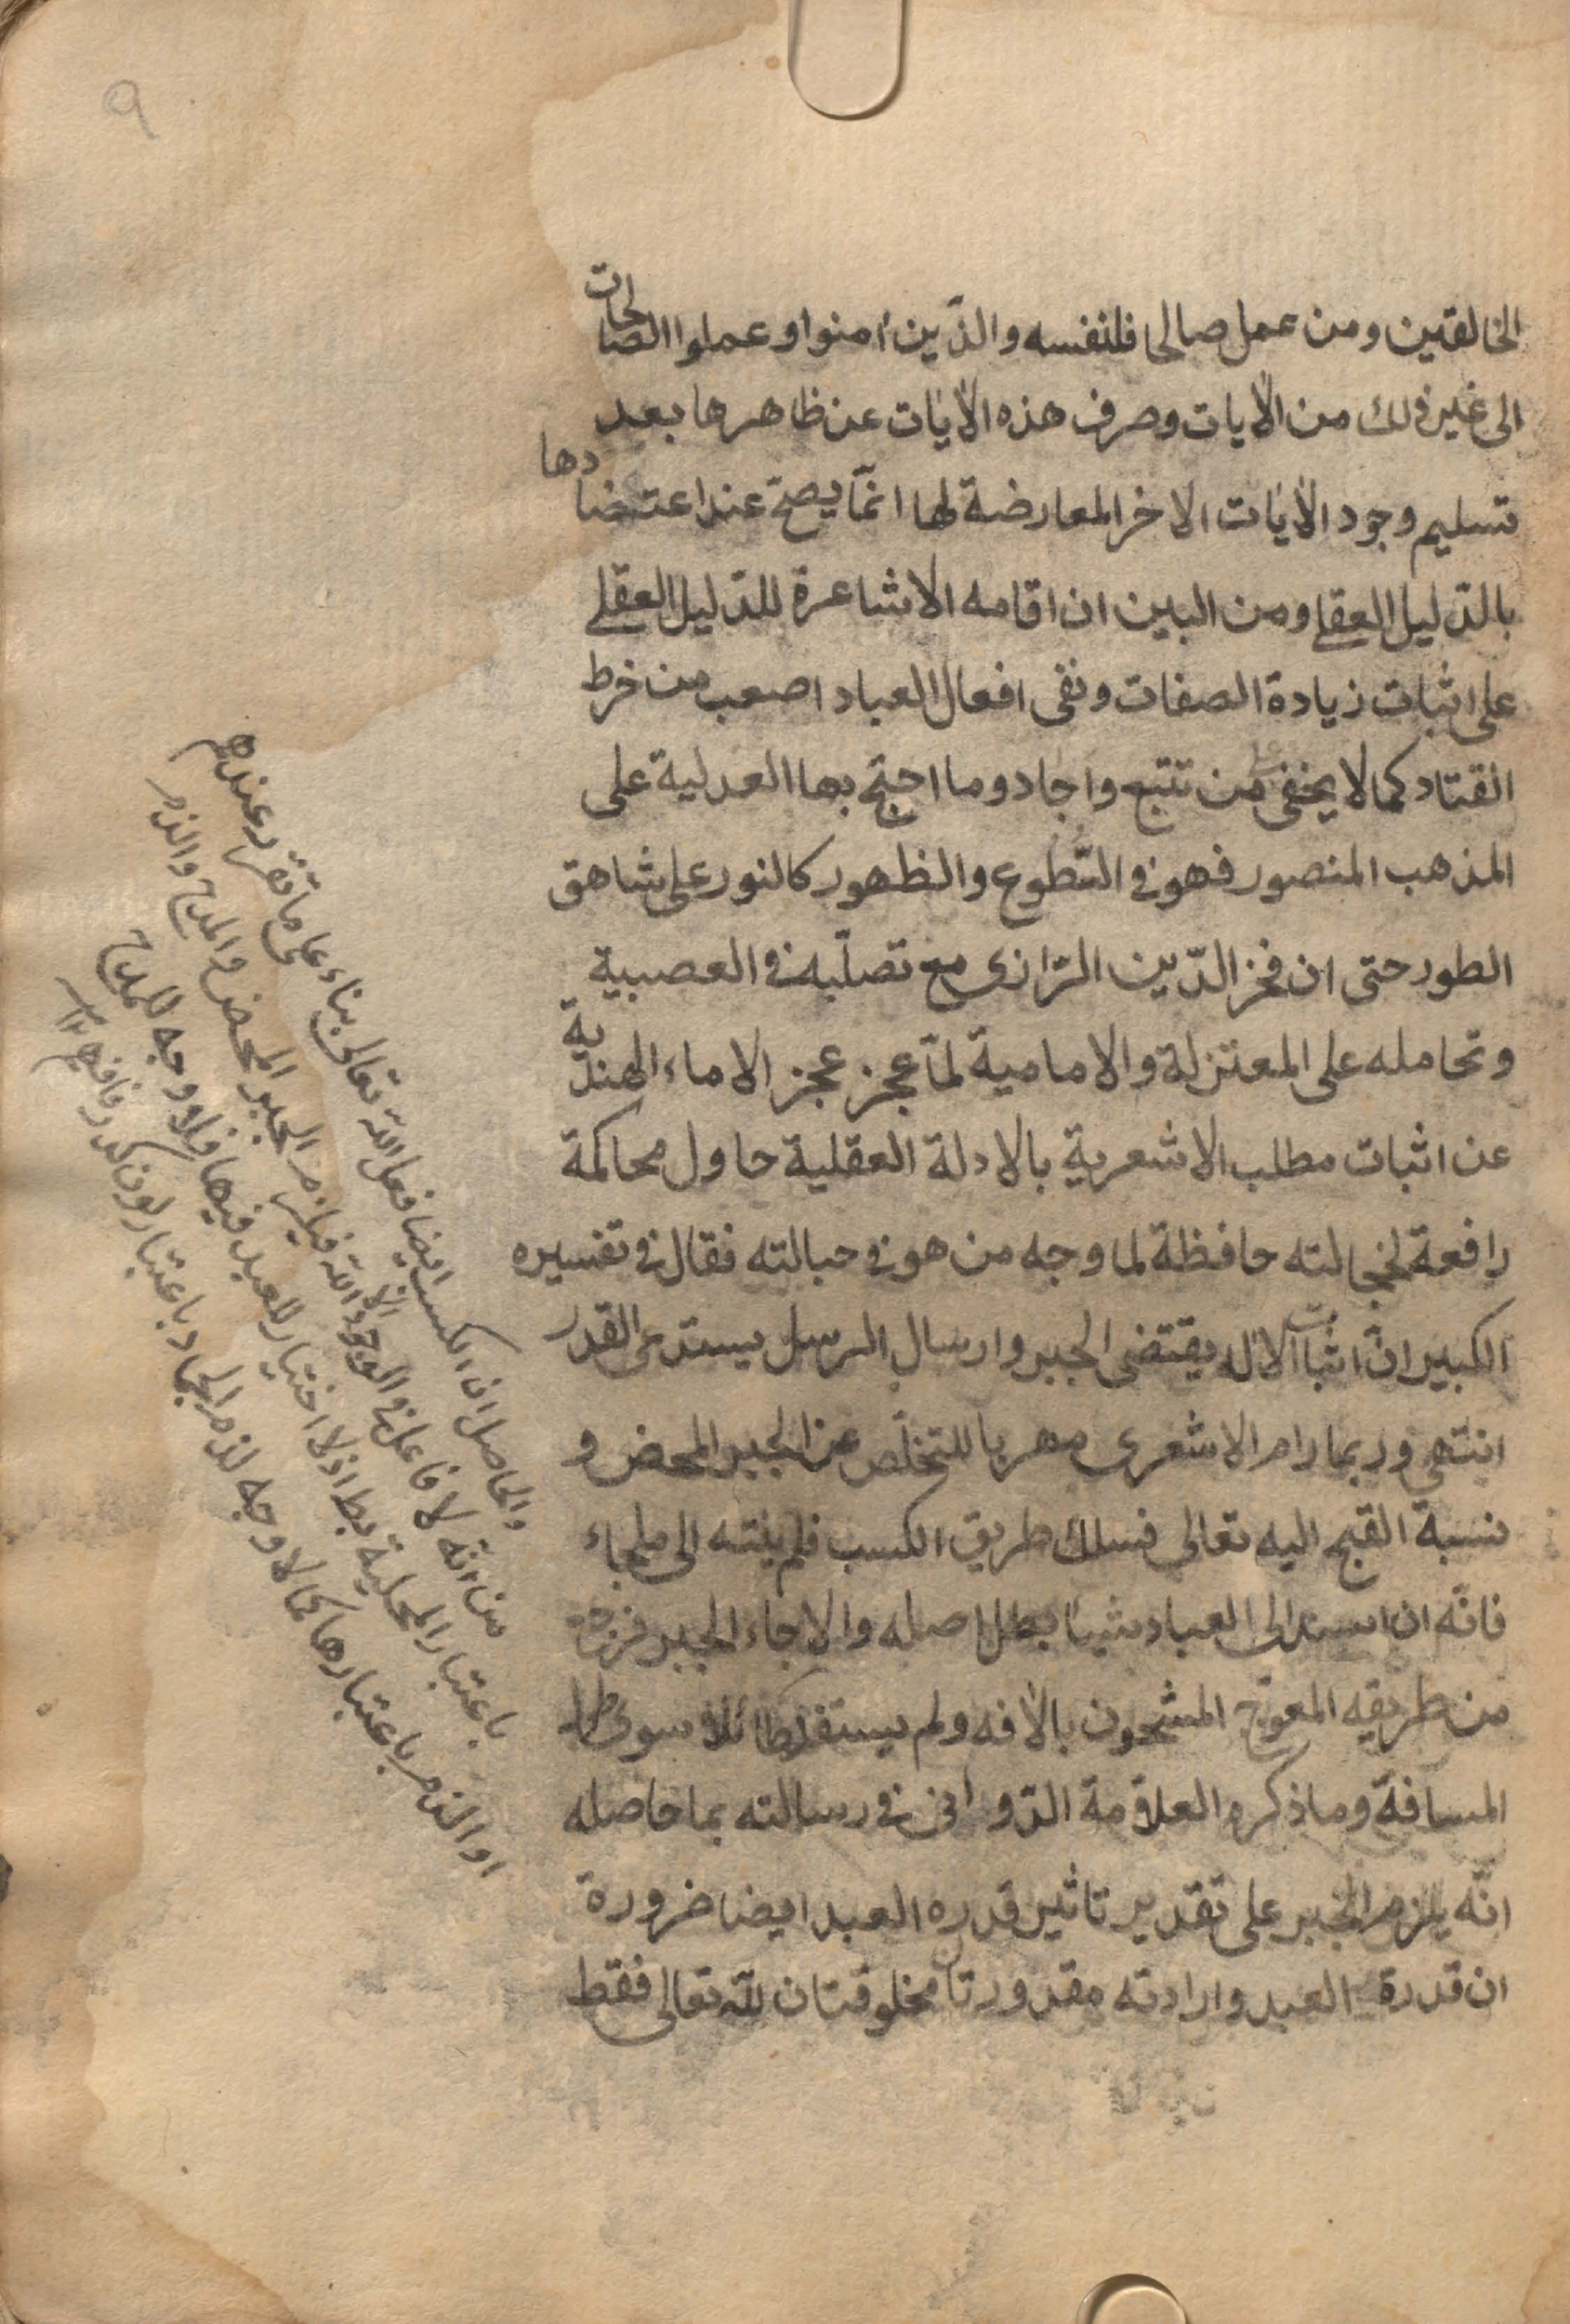 ٩
الخالقين ومن عمل صالحا فلنفسه والذين امنوا وعملوا الصالحات
الى غير ذلك من الايات وصرف هذه الايات عن ظاهرها بعد
تسليم وجود الايات الاخر المعارضة لها انما يصح عند اعتضادها
بالدليل العقلي ومن البين ان اقامه الاشاعرة للدليل العقلي
على اثبات زيادة الصفات ونفى افعال العباد اصعب من خرط
القتاد كما لا يخفى على من تتبع واجاد وما احتج بها العدلية على
المذهب المنصور فهو في السطوع والظهور كالنور على شاهق
الطور حتى ان فخر الدين الرازى مع تصلبه في العصبية
وتحامله على المعتزلة والامامية لما عجز عجز الاماء الهندية
عن اثبات مطلب الاشعرية بالادلة العقلية حاول محاكمة
رافعة لخجالته حافظة لما وجه من هو في حبالته فقال في تفسيره
الكبير ان اثبات الاله يقتضى الجبر وارسال الرسل يستدعى القدر
انتهى وربما رام الاشعرى مهربا للتخلص عن الجبر المحض و
نسبة القبح اليه تعالى فسلك طريق الكسب فلم ينته الى ملجاء
فانه ان اسند الى العباد شيئا بطل اصله والا جاء الجبر فرده
من طريقه المعوج المشحون بالافه ولم يستفد طائلا سوى طول
المسافة وما ذكره العلامة الدوانى في رسالته بما حاصله
انه يلزم الجبر على تقدير تاثير قدره العبد ايضا ضرورة
ان قدرة العبد وارادته مقدورتان مخلوقتان لله تعالى فقط
والحاصل ان الكسب ايضا فعل الله تعالى بناء على ما تقرر عندهم
من انه لا فاعل في الوجود الا الله فيلزم الجبر المحض والمدح والذم
باعتبار المحلية بط اذ لا اختيار للعبد فيها فلا وجه للمدح
او الذم باعتبارها كما لا وجه لذم الجماد باعتبار لون كدر